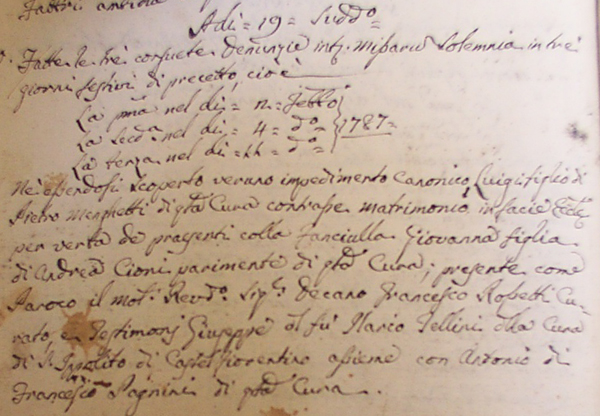 Adi = 19 = Suddo =
Fatte le tre consuete denunzie intr. Missarum Solemnia in tre
giorni festivi di precetto, cioè
La pma nel di = 2 = Febbo
La Secda nel di = 4 = do = 1787 =
La terza nel di = 11 = do =
Ne essendosi scoperto veruno impedimento Canonico, Luigi figlio di
Pietro Menghetti di qta Cura contrasse matrimonio in facie Eccle
per verba de praesenti colla Fanciulla Giovanna figlia
di Andrea Cioni parimente di qta Cura; presente come
Paroco il Molto Revdo Sigr Decano Francesco Rossetti Cu-
rato, e Testimonj Giuseppe del fu Ilario Tellini della Cura
di S. Ippolito di Castel fiorentino assieme con Antonio di
Francesco Pagnini di qta Cura.